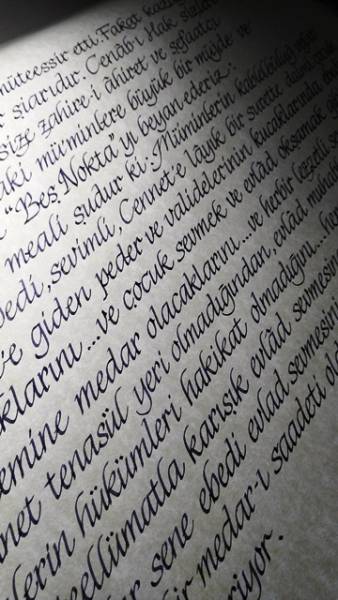 müteessir etti. Fakat
şiarıdır. Cenâb-ı Hak sizlere
size zahire-i âhiret ve şefaatçi
aki mü'minlere büyük bir müjde ve
"Beş Nokta"yı beyan ederiz:
meali şudur ki: Mü'minlerin
ebedî, sevimli, Cennet'e lâyık bir surette
e giden peder ve validelerinin kucaklarında
klarını...ve çocuk sevmek ve evlâd okşamak
emine medar olacaklarını...ve herbir lezzetli
nnet tenasül yeri olmadığından, evlâd
lerin hükümleri hakikat olmadığını...
eellümatla karışık evlâd sevmesine
sene ebedî evlad sevmesini
bir medar-ı saadeti
riyor.